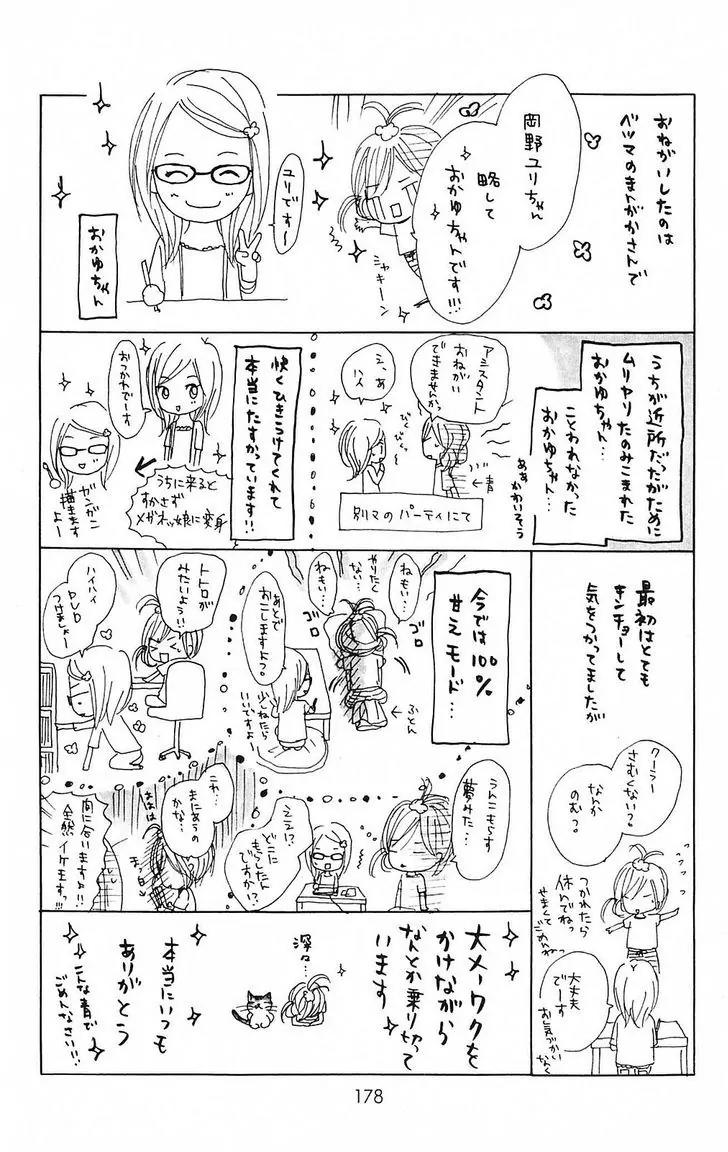 おねがいしたのは
ベツマのまんがかさんで
岡野ユリちゃん
略して
おかゆちゃんです!!!
シャキーン
ユリです〜
おかゆちゃん
うちが近所だったがために
ムリヤリたのみこまれた
おかゆちゃん…
ことわれなかった
おかゆちゃん…
ああかわいそう
アシスタント
おねがい
できませんか?
え、あ
ハイ
びくびく
びくびく
←青
別マのパーティにて
快くひきうけてくれて
本当にたすかっています!!
おつかれでーす
うちに来ると
すかさず
メガネッ娘に変身
ガンガン
描きます
よー
最初はとても
キンチョーして
気をつかってましたが
クーラー
さむくない?
なんか
のむ?
つかれたら
休んでねっ
せまくて
ごめんねっ
大丈夫
でーす
お気づかい
なく
今では100%
甘えモード…
ねむい…
やりたく
ない…
ねむい…
ゴロ
ゴロ
←ふとん
あとで
おこしますよっ。
少しねたら
いいですよー
トトロが
みたいよう!!
ハイハイ
DVD
つけましょー
うんこもらす
夢みた…
ええ!?
どこに
もらしたん
ですか!?
これ…
まにあうの
かな…
間に合いますよ!!!
全然イケますっ!!
大メーワクを
かけながら
なんとか乗り切って
います
深々…
本当にいつも
ありがとう
こんな青で
ごめんなさい!!
178